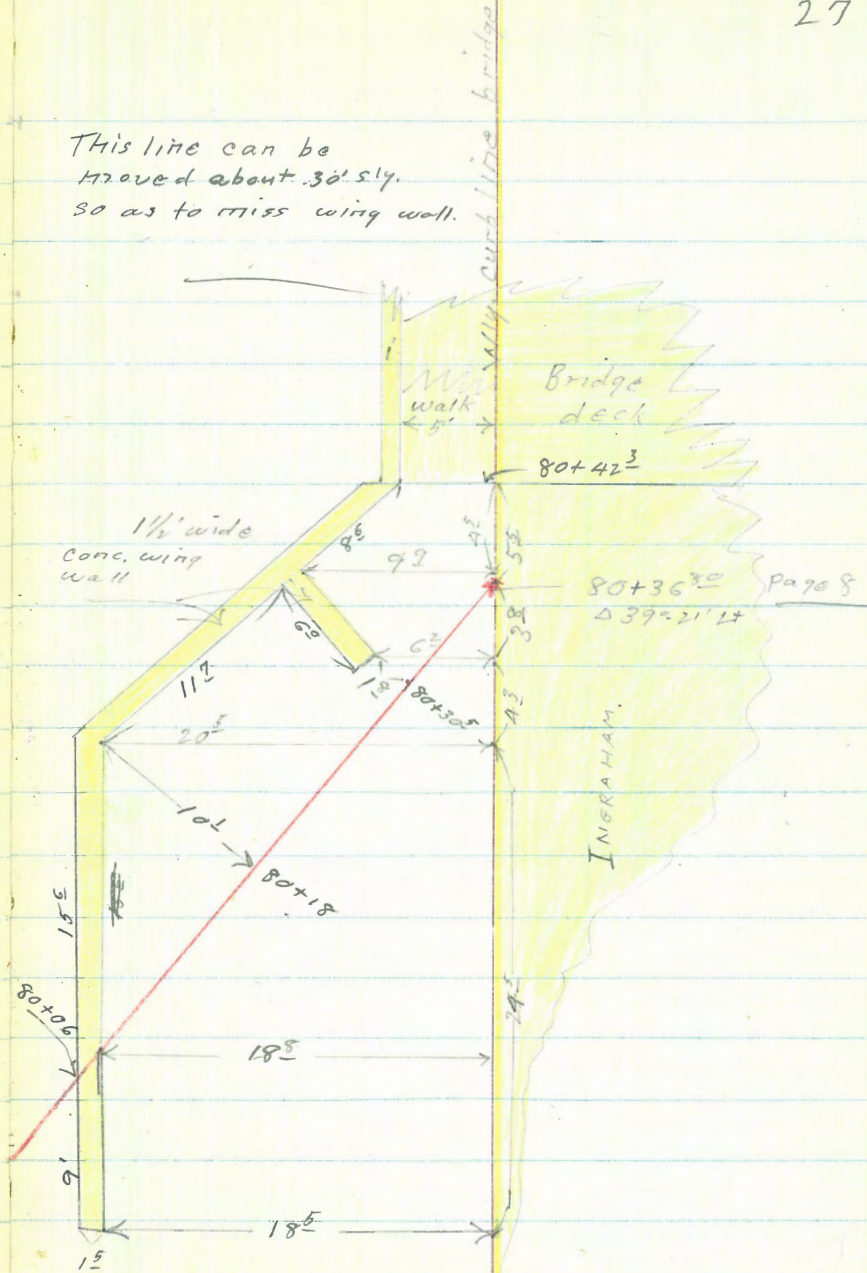 27
This line can be
moved about 30' s'ly.
so as to miss wing wall.
N'ly curb line bridge
Bridge
deck
walk
5'
80+42³
1½' wide
conc. wing
wall
8⁶
9⁹
4⁵
5⁵
80+36⁸⁰
Δ39°21' Lt
Page 8
6⁰
6²
3⁸
1⁸
80+30⁵
11⁷
20⁵
4³
INGRAHAM.
10⁷
80+18
15⁶
80+06
24⁵
18⁸
9'
18⁵
1⁵